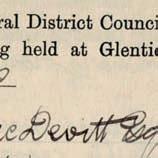 ral District Counci
g held at Glentie
cDevitt Esq